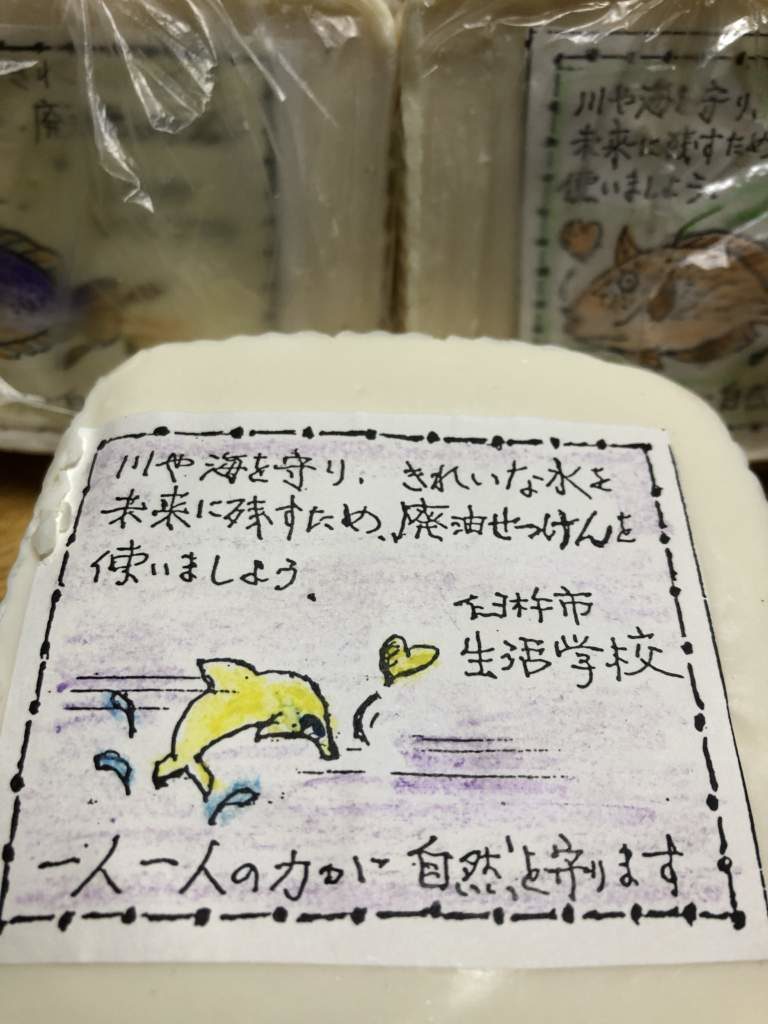 廃
川や海を守り、
未来に残すため
使いましょう。
川や海を守り、きれいな水を
未来に残すため、廃油せっけんを
使いましょう。
臼杵市
生活学校
一人一人の力が 自然を守ります